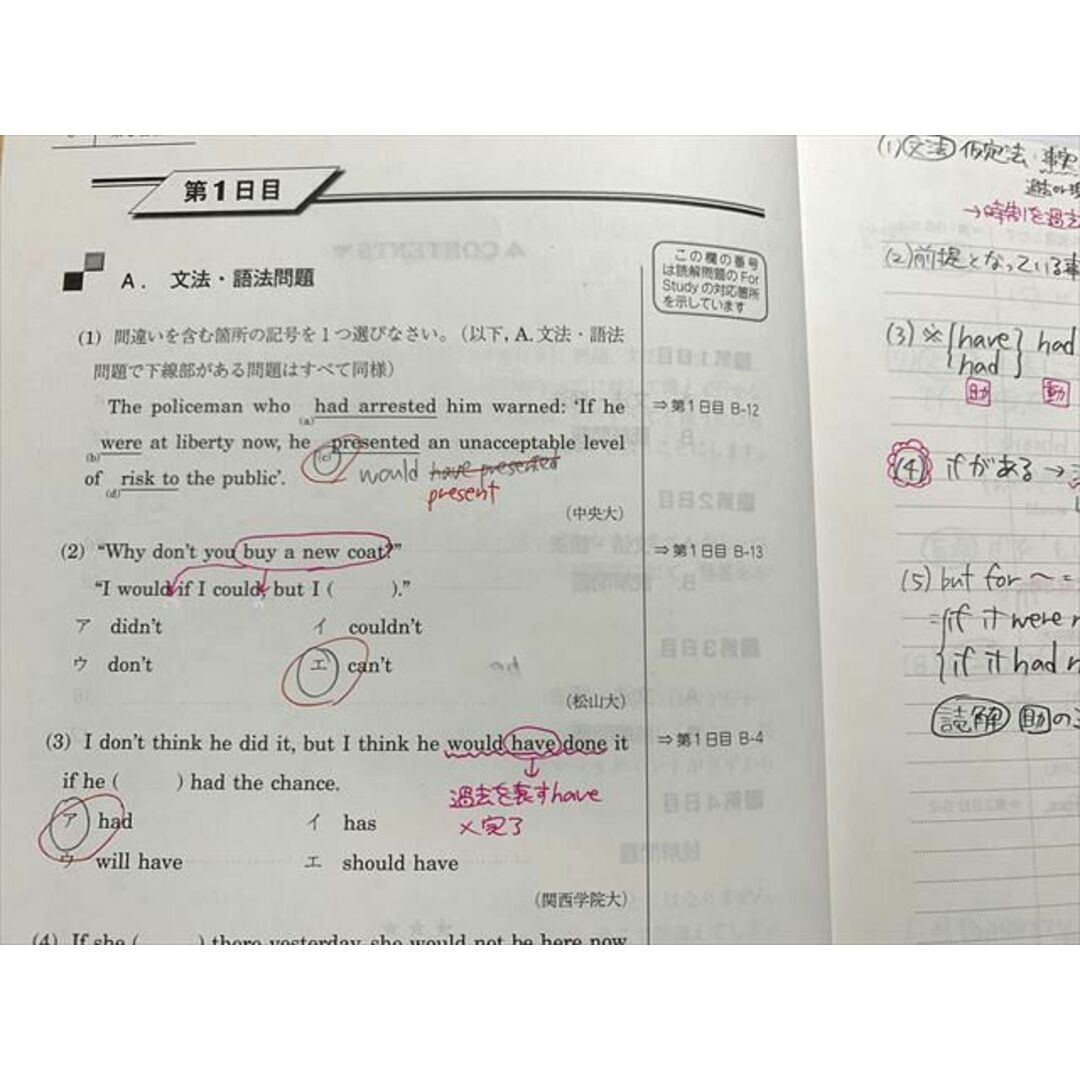 第1日目
A. 文法・語法問題
この欄の番号
は読解問題の For
Study の対応箇所
を示しています
(1) 間違いを含む箇所の記号を1つ選びなさい。(以下, A. 文法・語法
問題で下線部がある問題はすべて同様)
The policeman who (a)had arrested him warned: 'If he
⇒第1日目 B-12
(b)were at liberty now, he (c)presented an unacceptable level
of (d)risk to the public'.
would have presented
present
(中央大)
(2) "Why don't you buy a new coat?"
⇒第1日目 B-13
"I would if I could, but I ( )."
ア didn't イ couldn't
ウ don't エ can't
(松山大)
(3) I don't think he did it, but I think he would have done it
⇒第1日目 B-4
if he ( ) had the chance.
過去を表すhave
×完了
ア had イ has
ウ will have エ should have
(関西学院大)
(4) If she ( ) there yesterday, she would not be here now
(1) 文法 仮定法 事実
→時制を過去
(2) 前提となっている事
(3) ※ have had
had
助 動
(4) ifがある→
(5) but for 〜 =
= if it were
if it had
読解 助の
CONTENTS
第1日目
第2日目
第3日目
第4日目